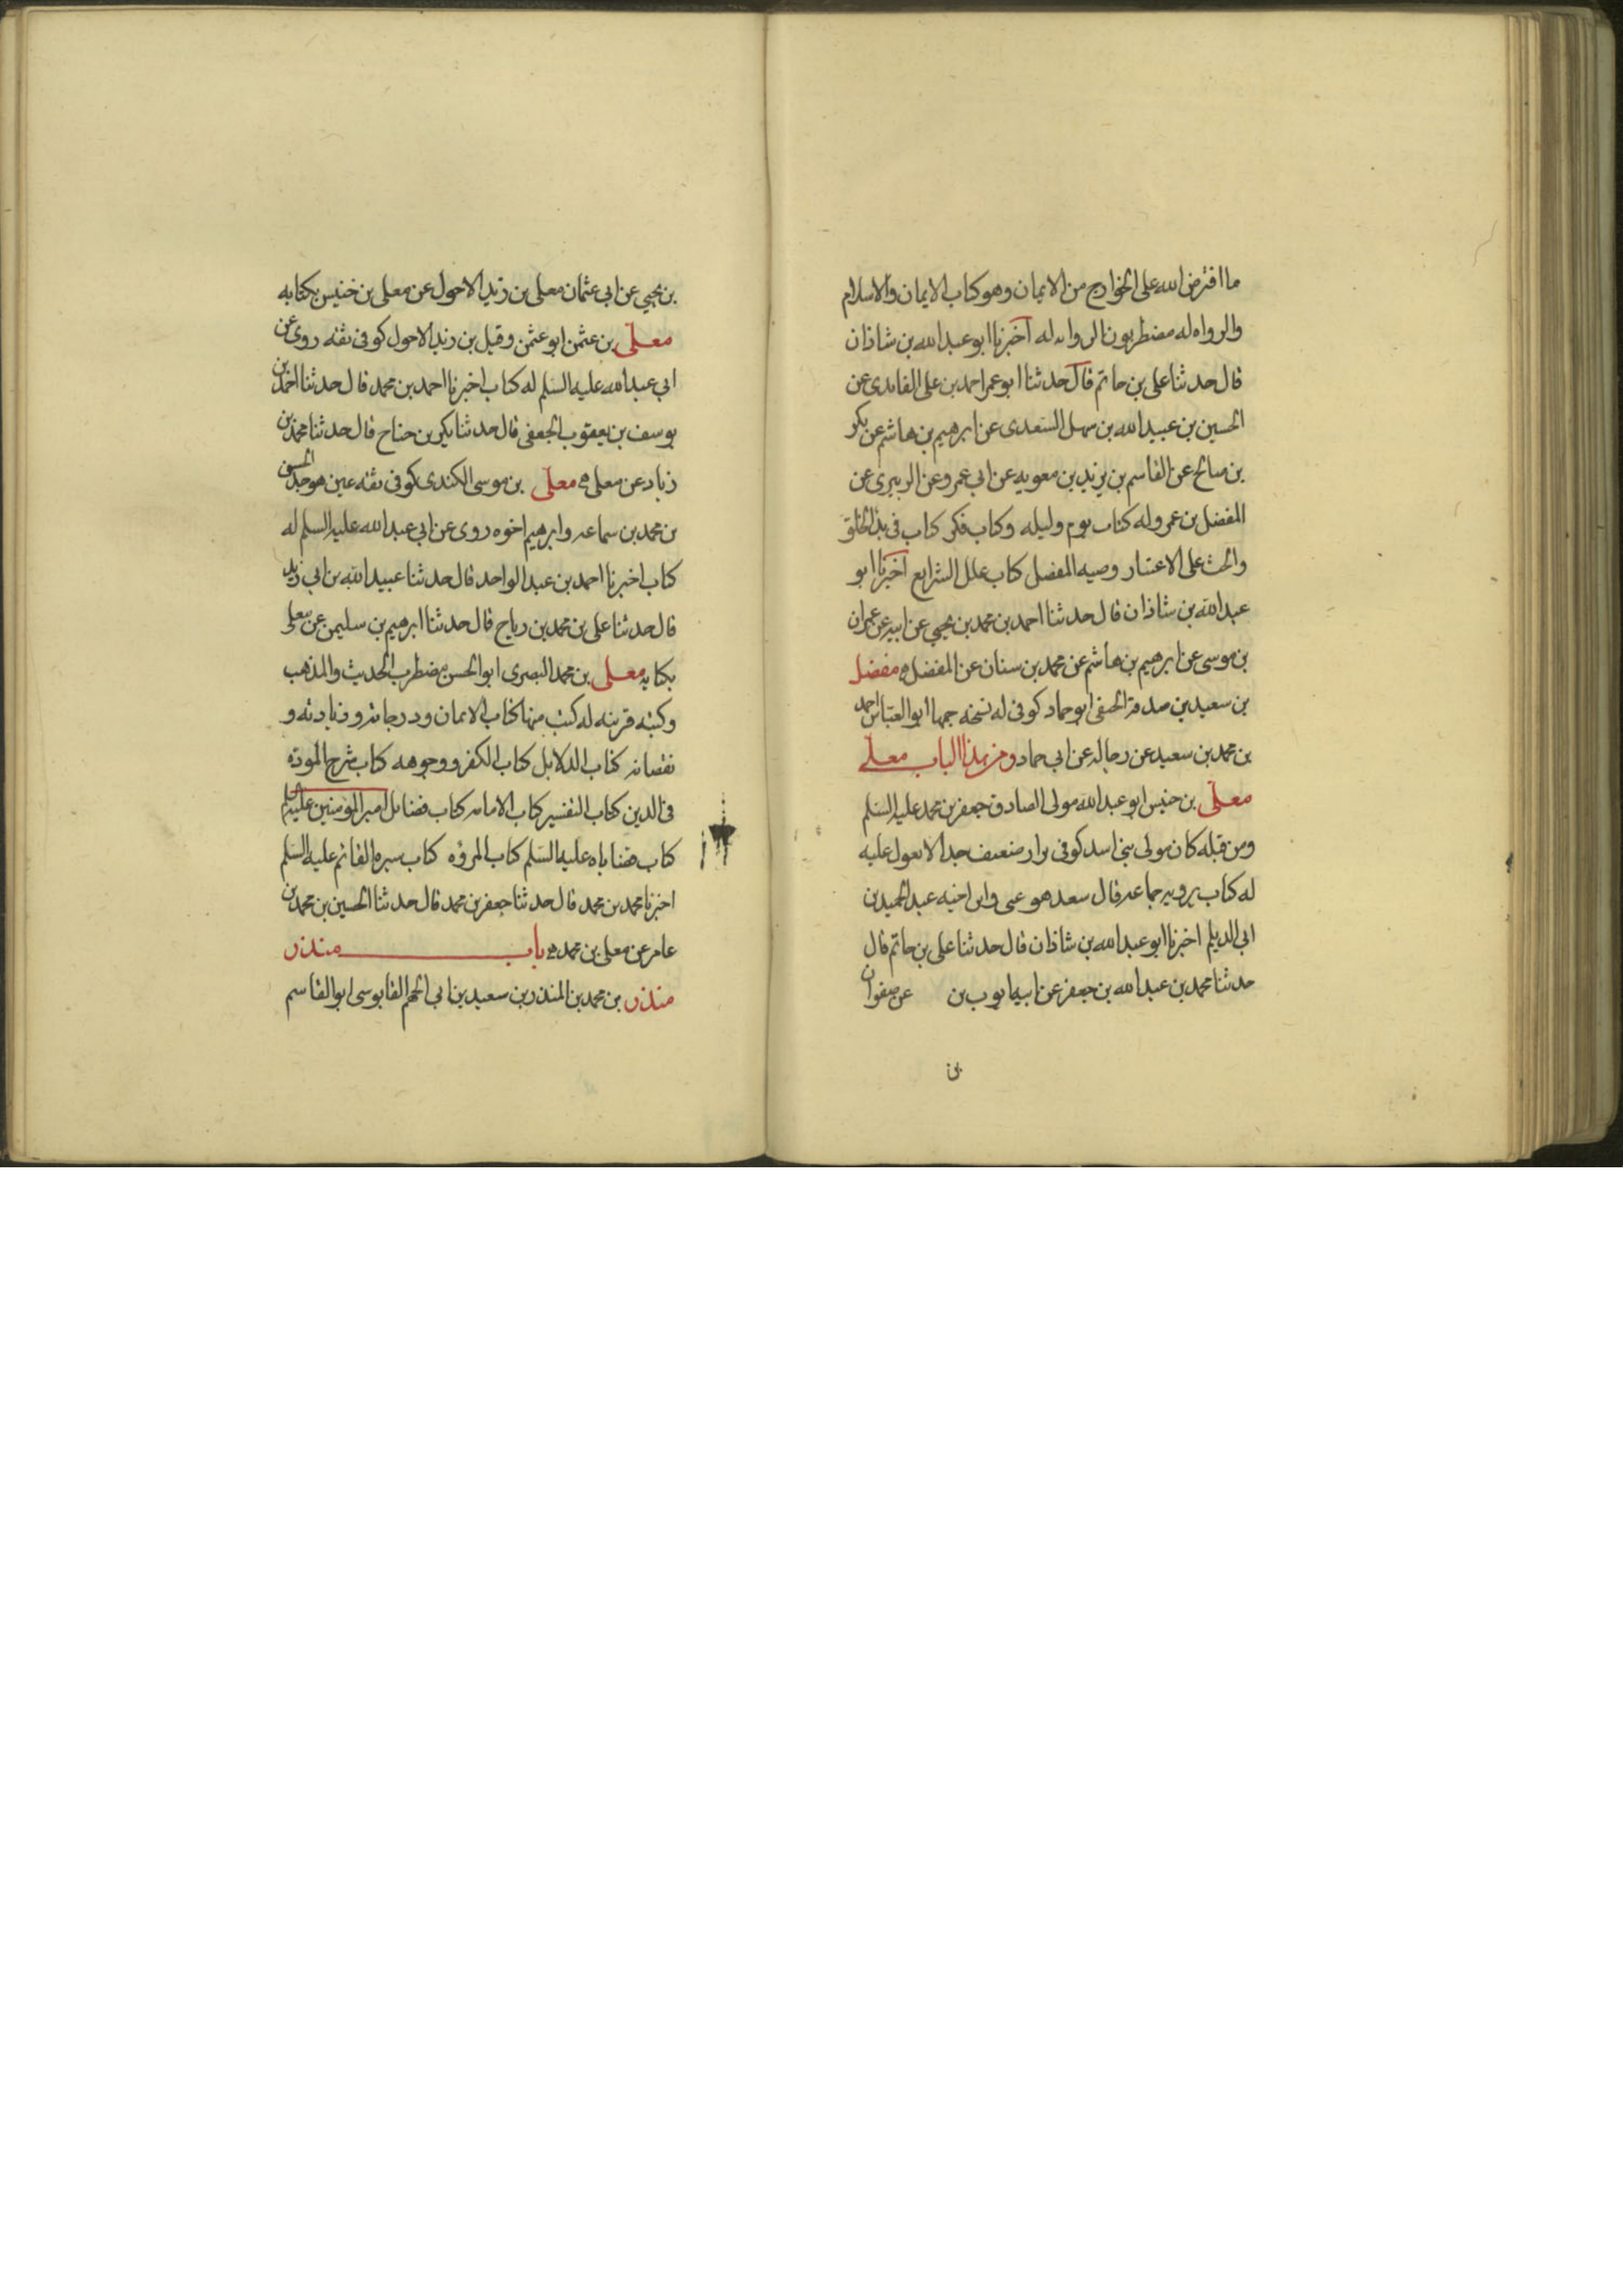 ما افترض الله على الجوارح من الايمان وهو كتاب الايمان والاسلام
والرواه له مضطربون الروايه له اخبرنا ابو عبد الله بن شاذان
قال حدثنا على بن حاتم قال حدثنا ابو عمر احمد بن على الفايدى عن
الحسين بن عبيد الله بن سهل السعدى عن ابرهيم بن هاشم عن بكر
بن صالح عن القاسم بن بريد بن معويه عن ابي عمرو عن الزبيرى عن
المفضل بن عمر وله كتاب يوم وليله وكتاب فكر كتاب فى بدء الخلق
والحث على الاعتبار وصيه المفضل كتاب علل الشرايع اخبرنا ابو
عبد الله بن شاذان قال حدثنا احمد بن محمد بن يحيى عن ابيه عن عمران
بن موسى عن ابرهيم بن هاشم عن محمد بن سنان عن المفضل مفضل
بن سعيد بن صدقة الحنفى ابو حماد كوفى له نسخه جمعها ابو العباس احمد
بن محمد بن سعيد عن رجاله عن ابى حماد ومن هذا الباب معلى
معلى بن خنيس ابو عبد الله مولى الصادق جعفر بن محمد عليه السلم
ومن قبله كان مولى بنى اسد كوفى بزاز ضعيف جدا لا يعول عليه
له كتاب يرويه جماعه قال سعد هو عنى وابن اخيه عبد الحميد بن
ابى الديلم اخبرنا ابو عبد الله بن شاذان قال حدثنا على بن حاتم قال
حدثنا محمد بن عبد الله بن جعفر عن ابيه ايوب بن عن صفوان
بن
بن يحيى عن ابى عثمان معلى بن زيد الاحول عن معلى بن خنيس بكتابه
معلى بن عثمن ابو عثمن وقيل بن زيد الاحول كوفى ثقه روى عن
ابى عبد الله عليه السلم له كتاب اخبرنا احمد بن محمد قال حدثنا احمد بن
يوسف بن يعقوب الجعفى قال حدثنا بكير بن جناح قال حدثنا محمد بن
زياد عن معلى معلى بن موسى الكندى كوفى ثقه عين هو جد الحسن
بن محمد بن سماعه وابرهيم اخوه روى عن ابى عبد الله عليه السلم له
كتاب اخبرنا احمد بن عبد الواحد قال حدثنا عبيد الله بن ابى زيد
قال حدثنا على بن محمد بن رياح قال حدثنا ابرهيم بن سليمن عن معلى
بكتابه معلى بن محمد البصرى ابو الحسن مضطرب الحديث والمذهب
وكتبه قريبه له كتب منها كتاب الايمان ودرجاته وزيادته و
نقصانه كتاب الدلايل كتاب الكفر ووجوهه كتاب شرح الموده
فى الدين كتاب التفسير كتاب الامامه كتاب فضائل امير المومنين عليه السلم
كتاب قضاياه عليه السلم كتاب المروه كتاب سيره القائم عليه السلم
اخبرنا محمد بن محمد قال حدثنا جعفر بن محمد قال حدثنا الحسين بن محمد بن
عامر عن معلى بن محمد باب منذر
منذر بن محمد بن المنذر بن سعيد بن ابى الجهم القابوسى ابو القاسم